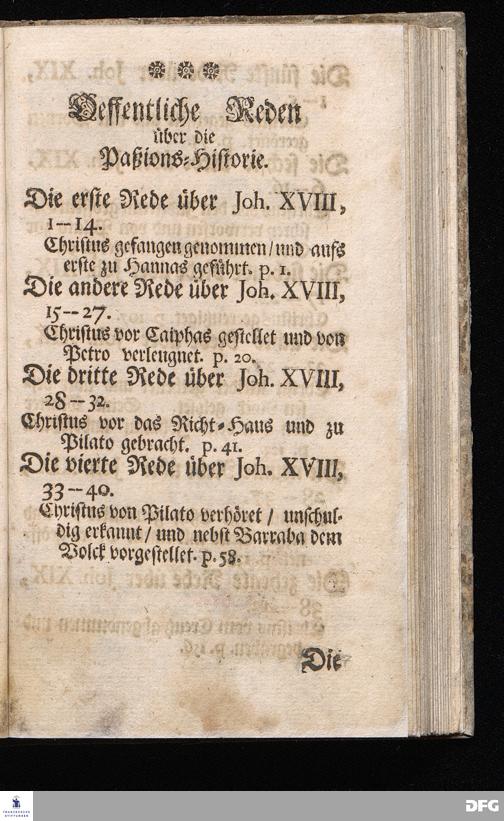 Oeffentliche Reden
über die
Paßions-Historie.
Die erste Rede über Joh. XVIII,
1--14.
Christus gefangen genommen/und aufs
erste zu Hannas geführt. p. 1.
Die andere Rede über Joh. XVIII,
15--27.
Christus vor Caiphas gestellet und von
Petro verleugnet. p. 20.
Die dritte Rede über Joh. XVIII,
28--32.
Christus vor das Richt-Haus und zu
Pilato gebracht. p. 41.
Die vierte Rede über Joh. XVIII,
33--40.
Christus von Pilato verhöret / unschul-
dig erkannt / und nebst Barraba dem
Volck vorgestellet. p. 58.
Die
FRANCKESCHE
STIFTUNGEN
DFG